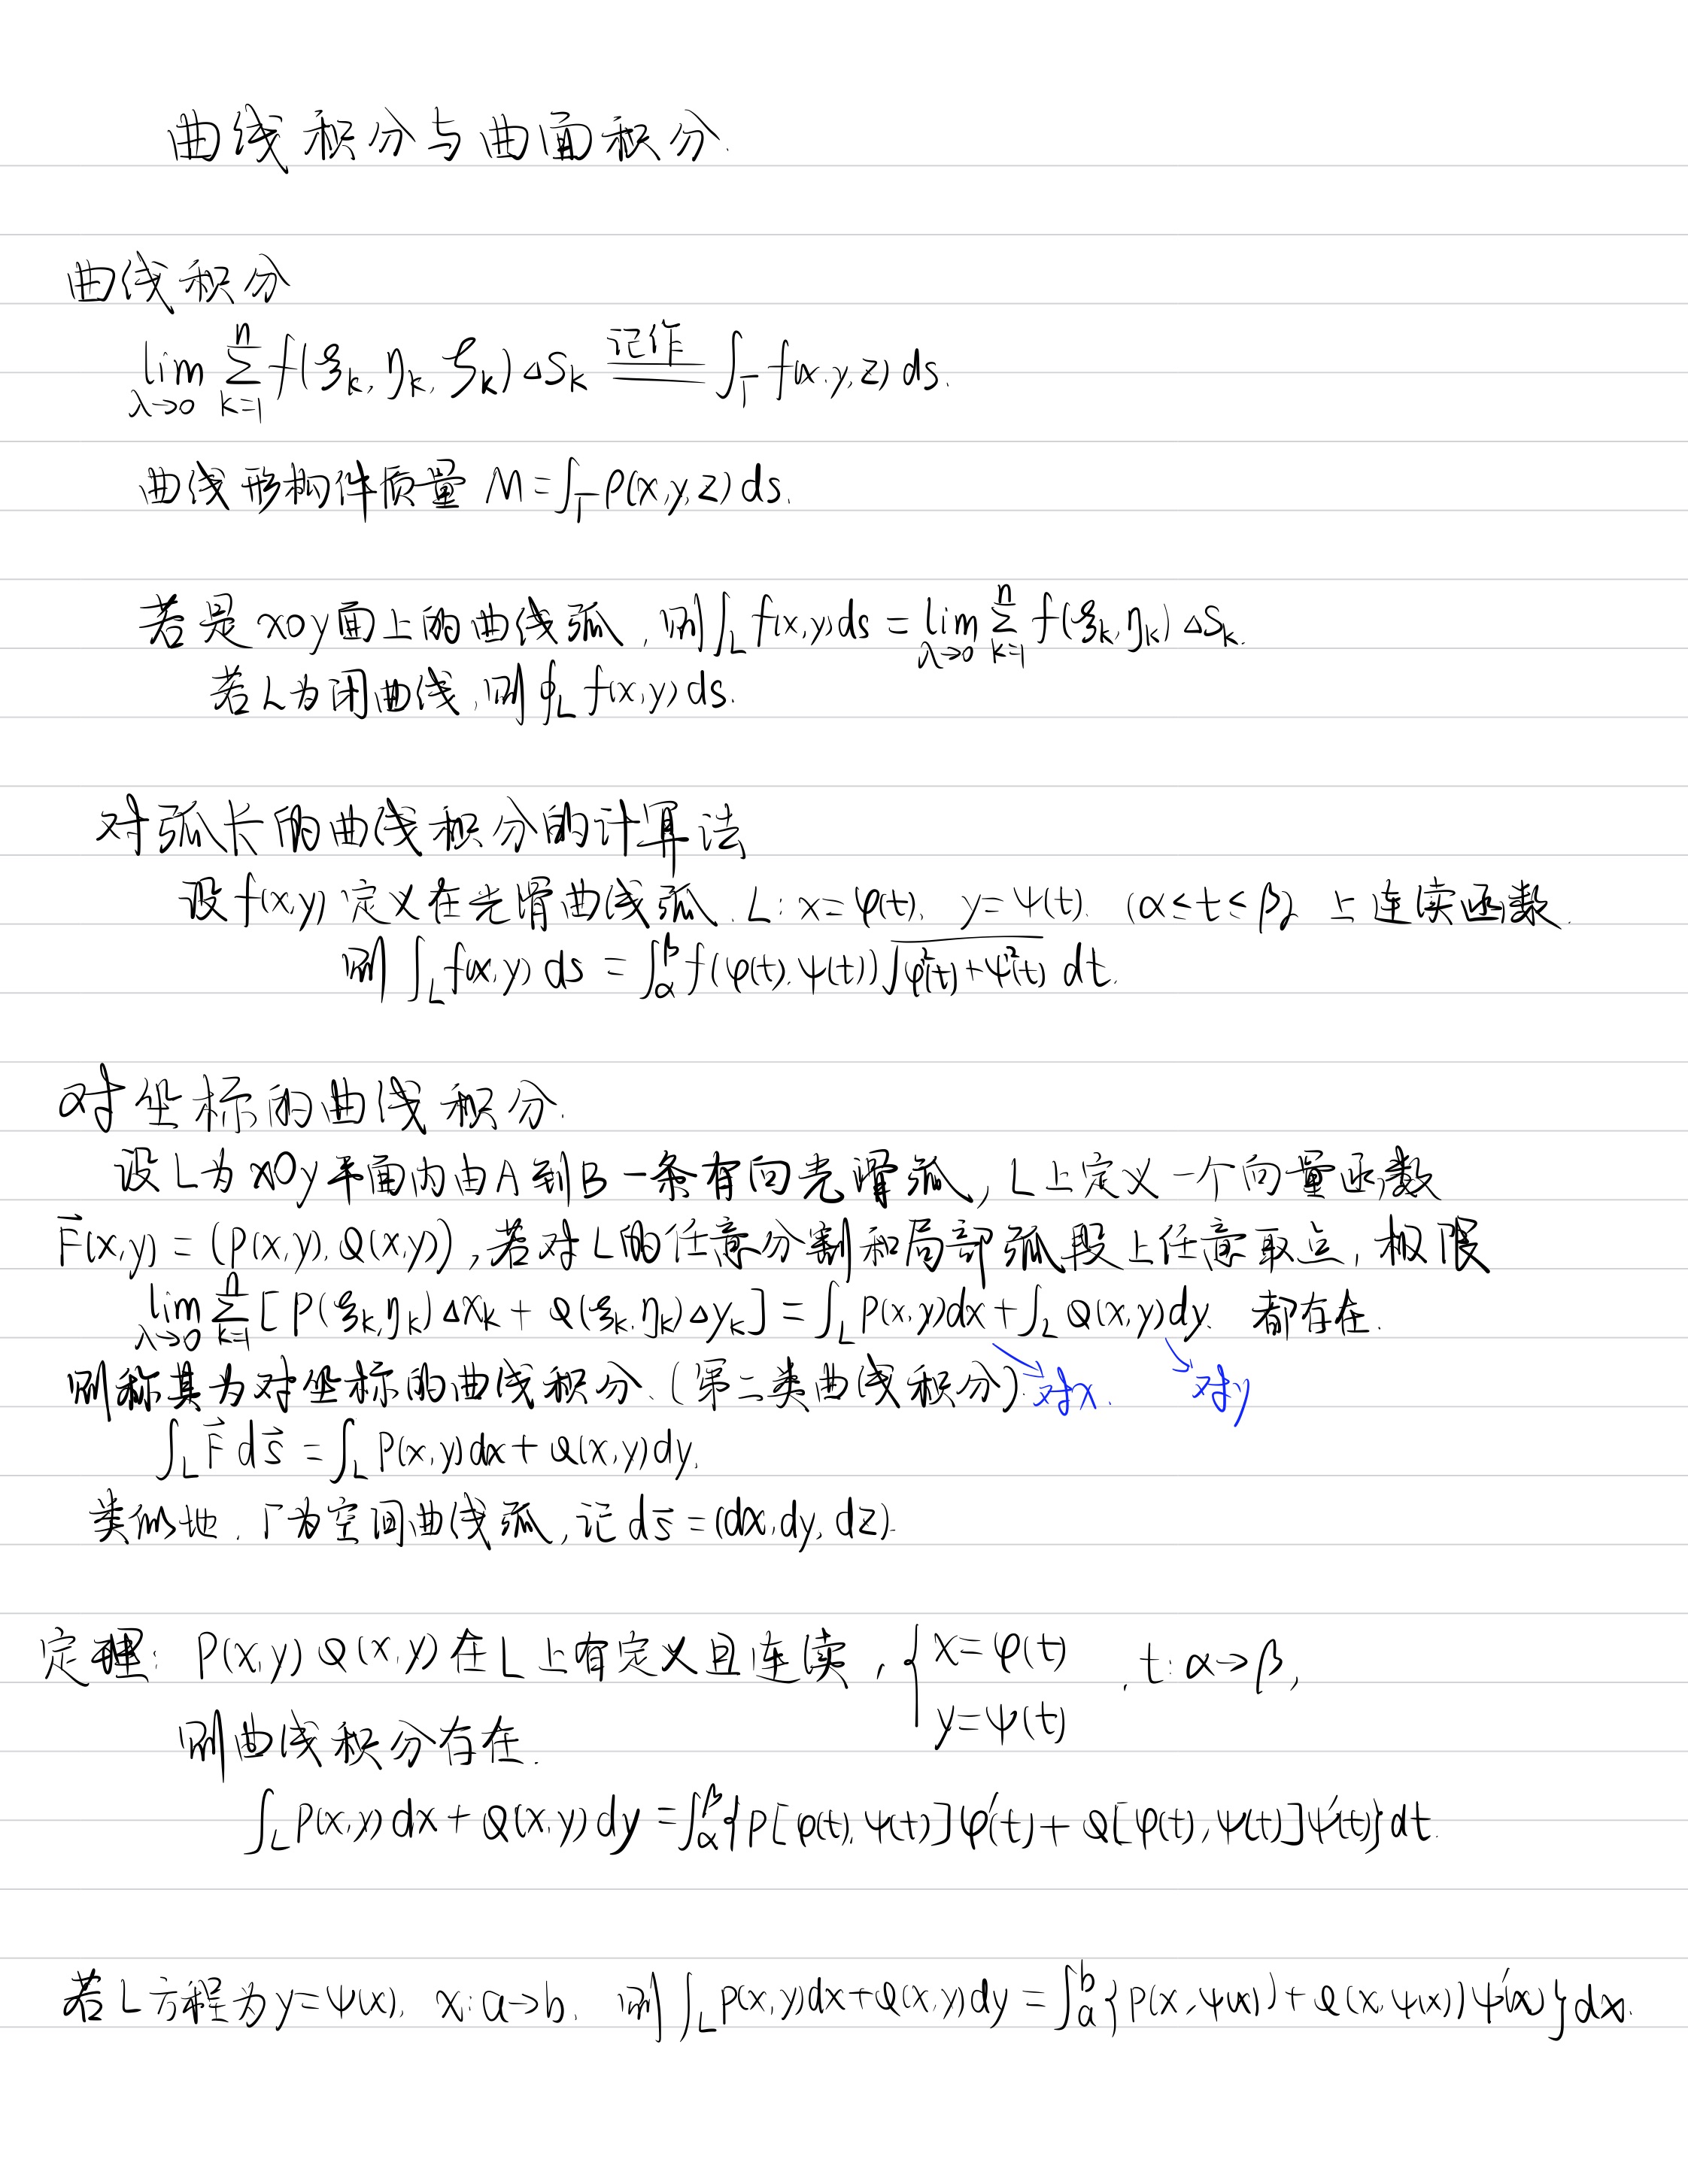 曲线积分与曲面积分.
曲线积分
lim_{λ→0} Σ_{k=1}^{n} f(ξ_k, η_k, ζ_k) ΔS_k 记作 ∫_Γ f(x,y,z) ds.
曲线形构件质量 M=∫_Γ ρ(x,y,z) ds.
若是xoy面上的曲线弧,则∫_L f(x,y)ds = lim_{λ→0} Σ_{k=1}^{n} f(ξ_k,η_k) ΔS_k.
若L为闭曲线,则∮_L f(x,y)ds.
对弧长的曲线积分的计算法
设f(x,y)定义在光滑曲线弧. L: x=φ(t), y=ψ(t). (α≤t≤β) 上连续函数.
则 ∫_L f(x,y) ds = ∫_α^β f(φ(t),ψ(t))√(φ'²(t)+ψ'²(t)) dt.
对坐标的曲线积分.
设L为xOy平面内由A到B一条有向光滑弧, L上定义一个向量函数
F⃗(x,y) = (P(x,y), Q(x,y)), 若对L的任意分割和局部弧段上任意取点, 极限
lim_{λ→0} Σ_{k=1}^{n} [P(ξ_k,η_k)Δx_k + Q(ξ_k,η_k)Δy_k] = ∫_L P(x,y)dx + ∫_L Q(x,y)dy. 都存在.
则称其为对坐标的曲线积分.(第二类曲线积分). 对x. 对y
∫_L F⃗ ds⃗ = ∫_L P(x,y)dx + Q(x,y)dy.
类似地. Γ为空间曲线弧,记 ds⃗ = (dx,dy,dz).
定理: P(x,y) Q(x,y) 在L上有定义且连续, { x=φ(t) , t: α→β,
y=ψ(t)
则曲线积分存在.
∫_L P(x,y)dx + Q(x,y)dy = ∫_α^β {P[φ(t),ψ(t)]φ'(t) + Q[φ(t),ψ(t)]ψ'(t)}dt.
若L方程为y=ψ(x), x:a→b, 则 ∫_L P(x,y)dx+Q(x,y)dy = ∫_a^b {P(x,ψ(x))+Q(x,ψ(x))ψ'(x)}dx.